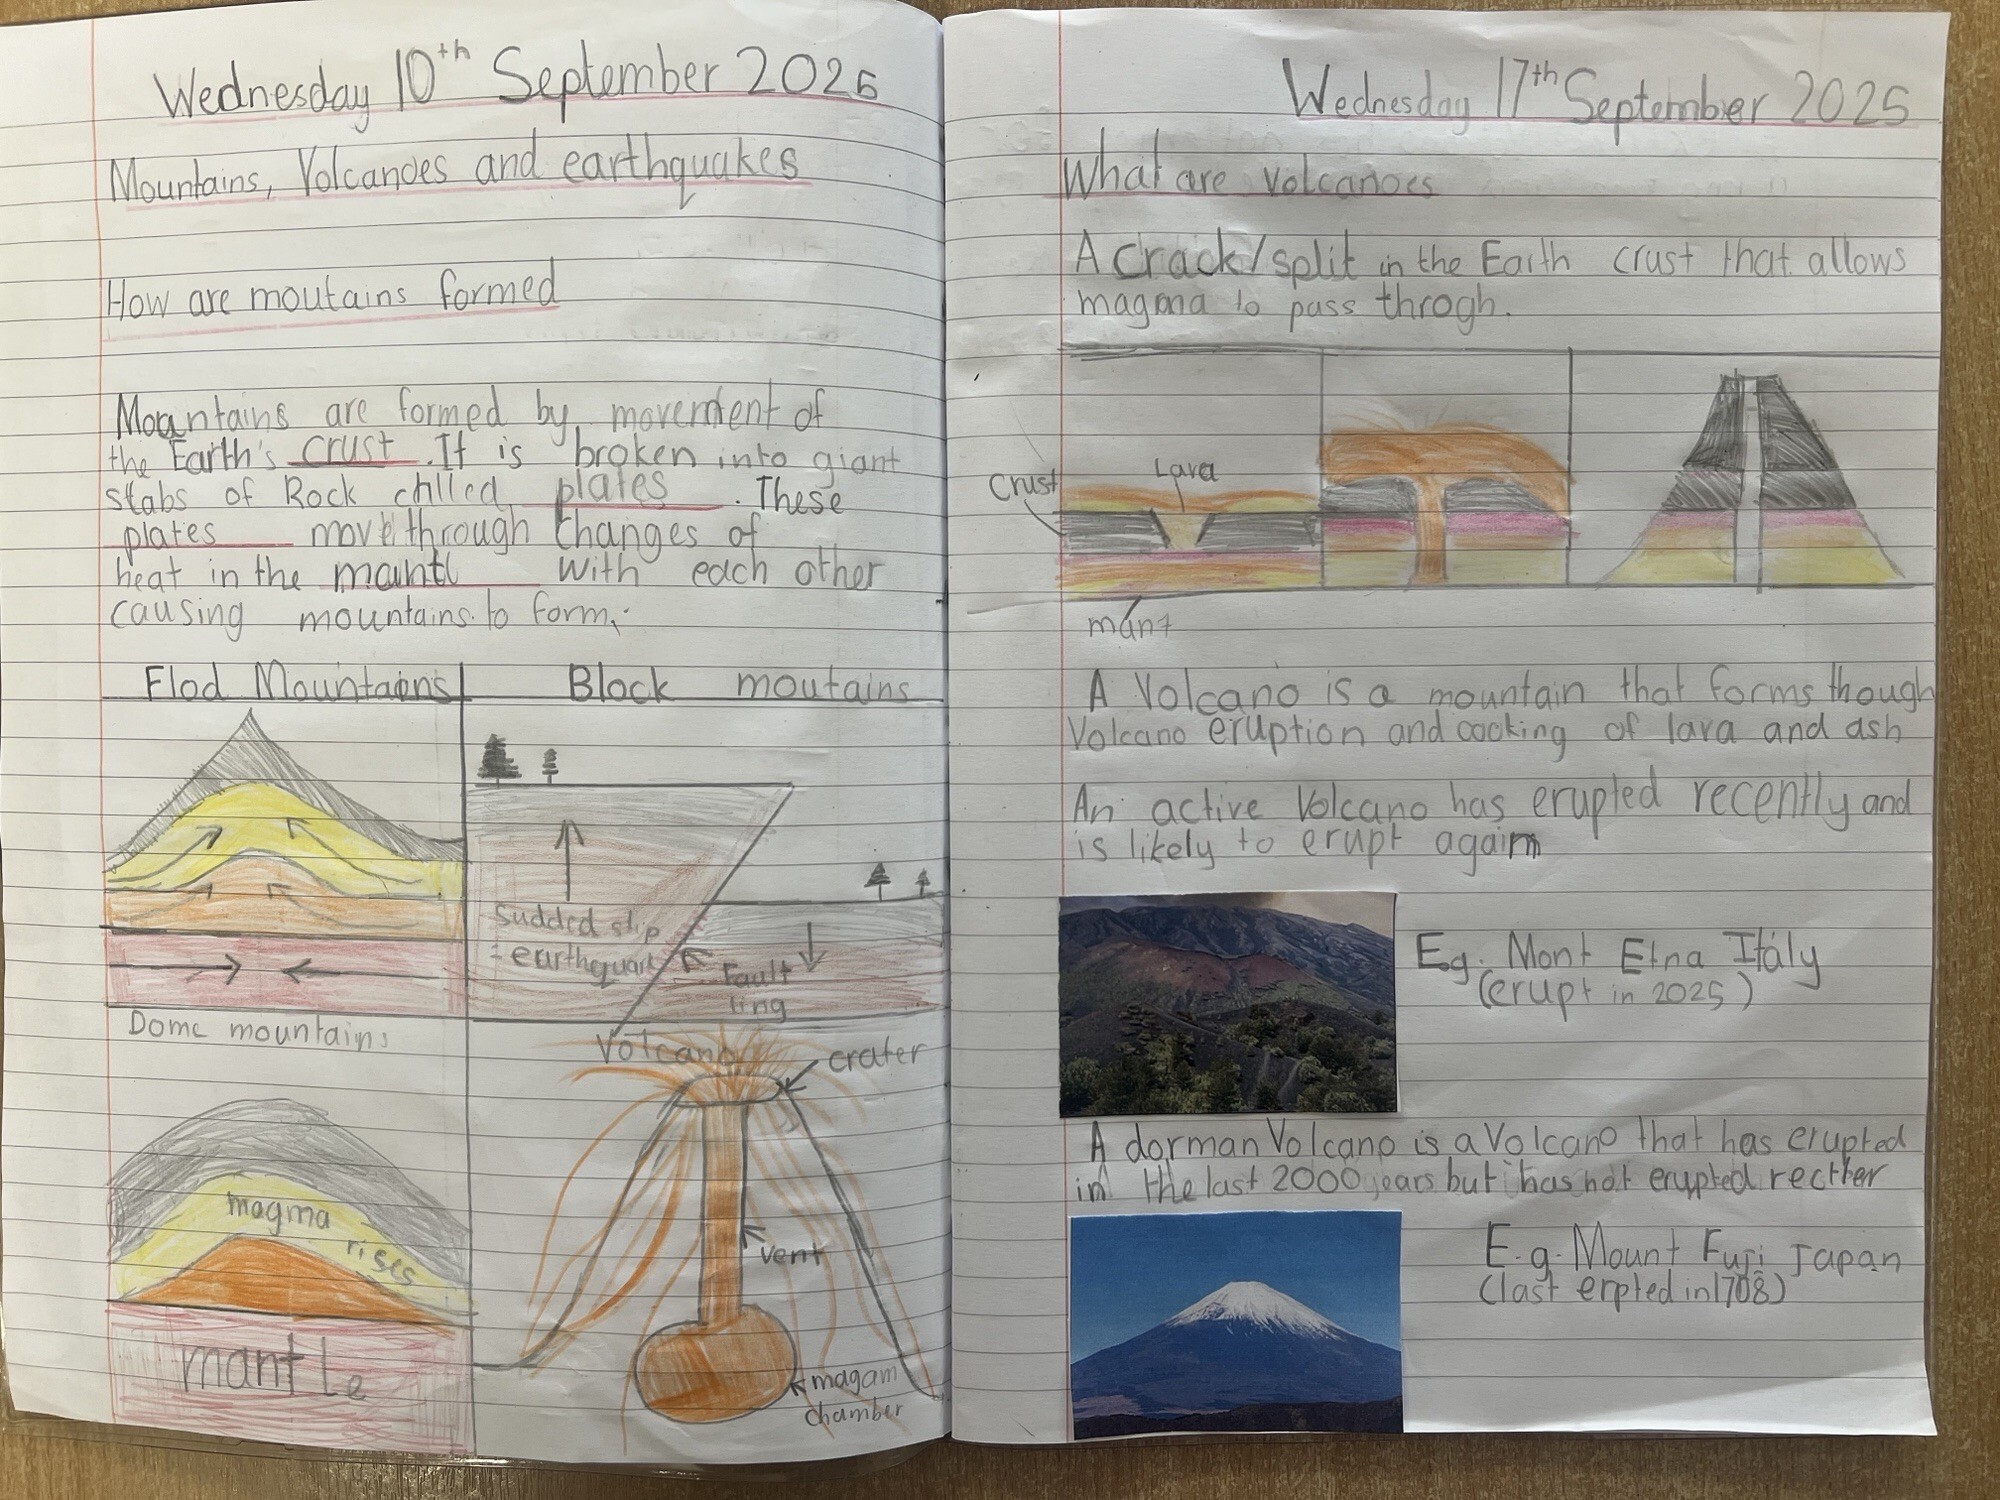 Wednesday 10th September 2025
Mountains, Volcanoes and earthquakes
How are moutains formed
Mountains are formed by movement of
the Earth's crust. It is broken into giant
stabs of Rock chlled plates. These
plates move through changes of
heat in the mantl with each other
causing mountains to form.
Flod Mountains
Block moutains
Sudded slip
= earthquark
Fault
ling
Dome mountains
magma
rises
mantle
Volcano
crater
vent
magam
chamber
Wednesday 17th September 2025
What are volcanoes
A crack/split in the Earth crust that allows
magma to pass throgh.
Crust
Lava
mant
A Volcano is a mountain that forms though
Volcano eruption and cocking of lava and ash
An active Volcano has erupted recently and
is likely to erupt again
Eg. Mont Etna Italy
(erupt in 2025)
A dorman Volcano is a Volcano that has erupted
in the last 2000 years but has not erupted
E.g. Mount Fuji Japan
(last erpted in 1708)